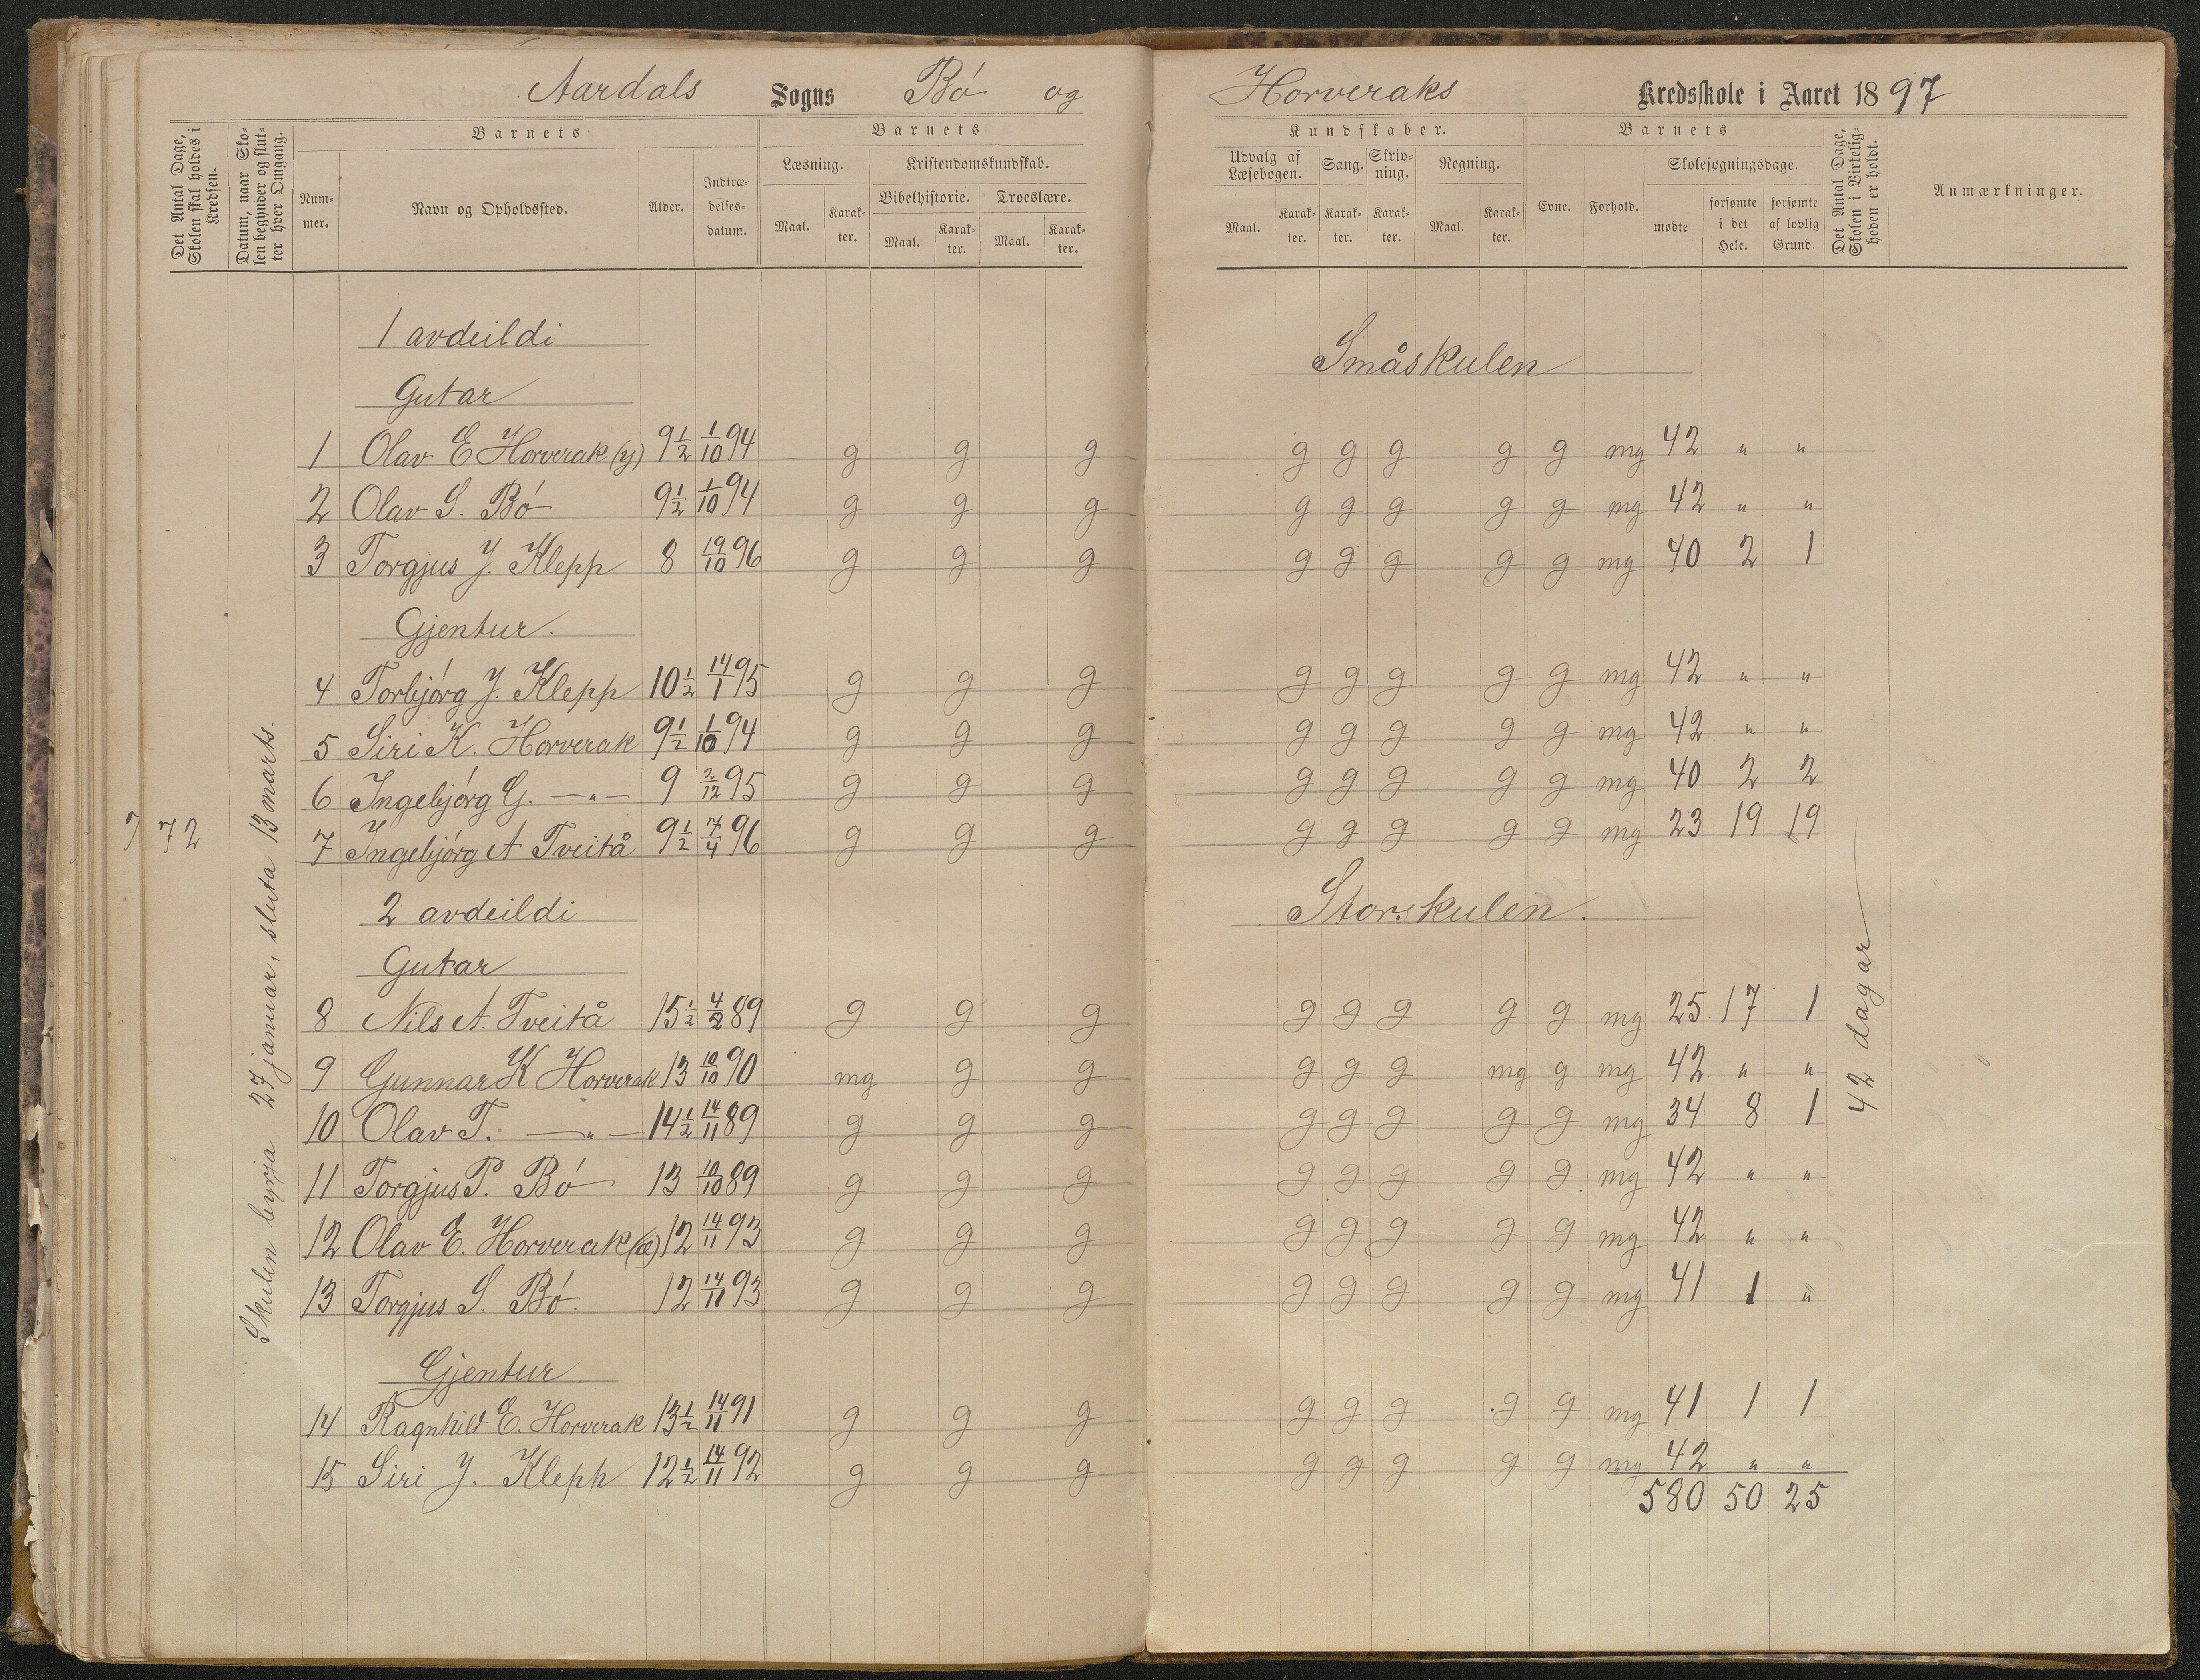 Aardals Sogns Bó og Horveraks Kredsskole i Aaret 1897
Det Antal Dage, Skolen skal holdes i Kredsen.
Datum, naar Skolen begynder og slutter hver Omgang.
Barnets
Nummer.
Navn og Opholdssted.
Alder.
Indtrædelsesdatum.
Barnets
Læsning.
Maal.
Karakter.
Kristendomskundskab.
Bibelhistorie.
Maal.
Karakter.
Troeslære.
Maal.
Karakter.
Kundskaber.
Udvalg af Læsebogen.
Maal.
Karakter.
Sang.
Karakter.
Skrivning.
Karakter.
Regning.
Maal.
Karakter.
Barnets
Evne.
Forhold.
Skolesøgningsdage.
mødte
forsømte i det Hele.
forsømte af lovlig Grund.
Det Antal Dage, Skolen i Virkeligheden er holdt.
Anmærkninger.
72
Skulen byrja 27 januar, sluta 13 marts.
1 avdeildi Småskulen
Gutar
1 Olav E Horverak (y) 9 1/2 1/10 94 g g g g g g g g mg 42 " "
2 Olav S. Bó 9 1/2 1/10 94 g g g g g g g g mg 42 " "
3 Torgjus J. Klepp 8 19/10 96 g g g g g g g g mg 40 2 1
Gjentur.
4 Torbjórg J. Klepp 10 1/2 14/1 95 g g g g g g g g mg 42 " "
5 Siri K. Horverak 9 1/2 1/10 94 g g g g g g g g mg 42 " "
6 Ingebjórg G. —"— 9 2/12 95 g g g g g g g g mg 40 2 2
7 Ingebjórg A Tveitå 9 1/2 7/4 96 g g g g g g g g mg 23 19 19
2 avdeildi Storskulen.
Gutar
8 Nils A. Tveitå 15 1/2 4/2 89 g g g g g g g g mg 25 17 1
9 Gunnar K Horverak 13 10/10 90 mg g g g g g mg g mg 42 " "
10 Olav T. —"— 14 1/2 14/11 89 g g g g g g g g mg 34 8 1
11 Torgjus P. Bó 13 10/10 89 g g g g g g g g mg 42 " "
12 Olav E. Horverak (æ) 12 14/11 93 g g g g g g g g mg 42 " "
13 Torgjus S. Bó. 12 14/11 93 g g g g g g g g mg 41 1 "
Gjentur
14 Ragnhild E. Horverak 13 1/2 14/11 91 g g g g g g g g mg 41 1 1
15 Siri J. Klepp 12 1/2 14/11 92 g g g g g g g g mg 42 " "
580 50 25
42 dagar